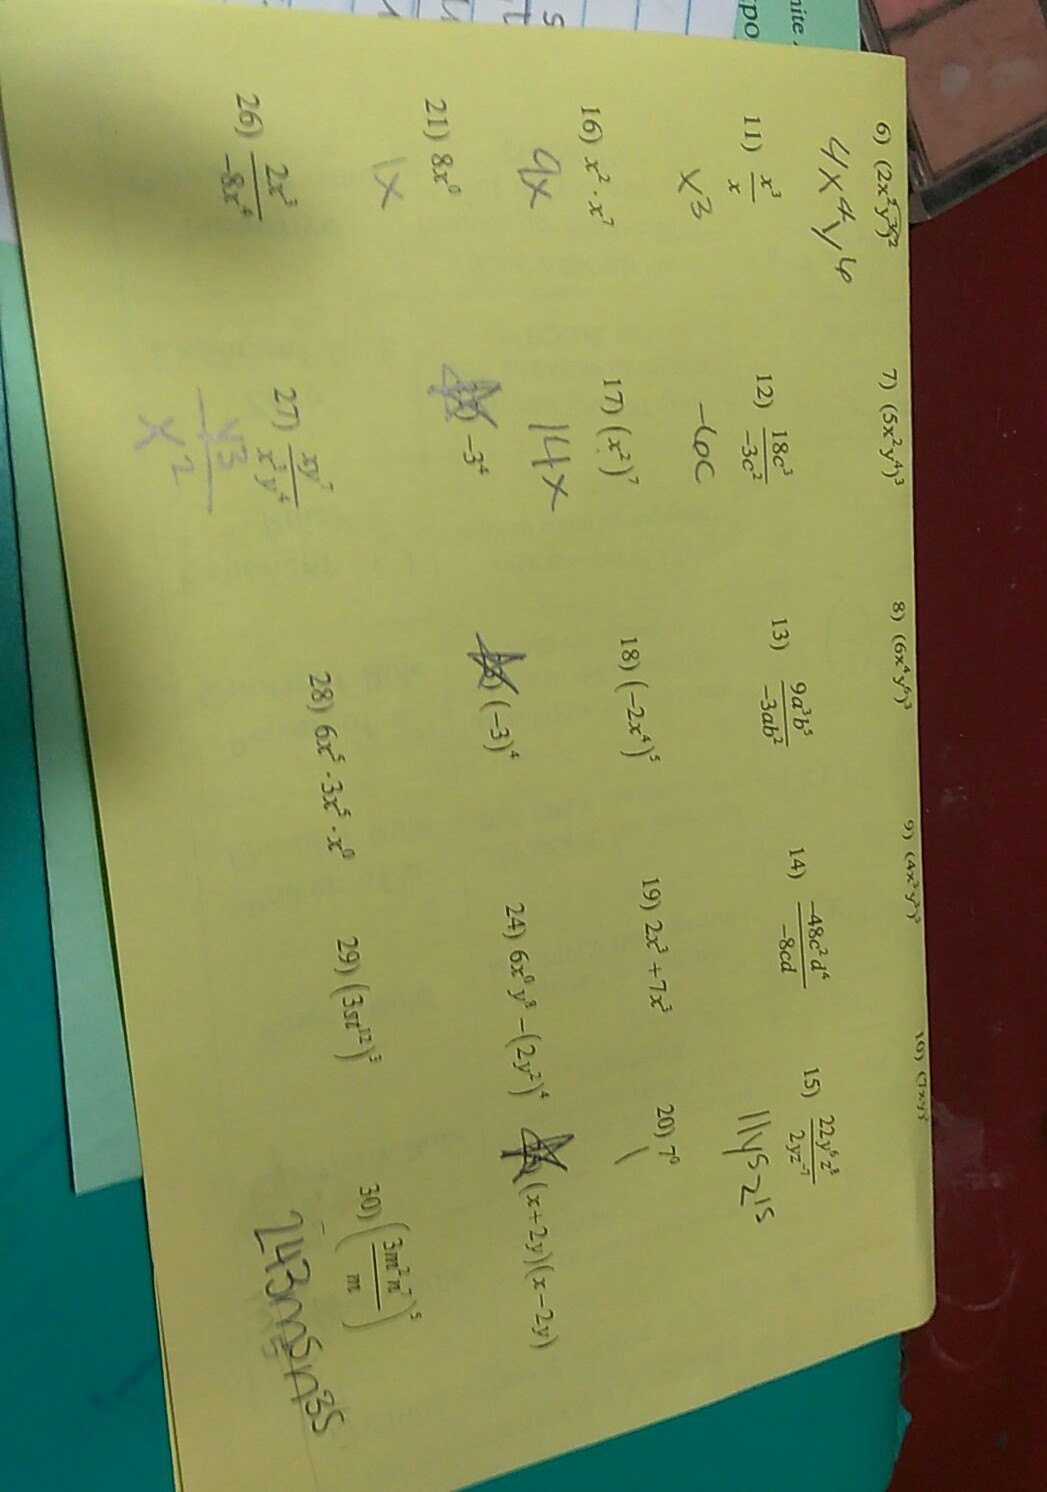 6) (2x²y³)² 7) (5x²y⁴)³ 8) (6x⁴y⁶)³ 9) 10)
4x⁴y⁶
11) x³/x 12) 18c³/-3c² 13) 9a³b⁵/-3ab² 14) -48c²d⁴/-8cd 15) 22y⁶z⁸/2yz⁻⁷
x3 -6c 11y5z15
16) x² · x⁷ 17) (x²)⁷ 18) (-2x⁴)⁵ 19) 2x³ + 7x³ 20) 7⁰
9x 14x 1
21) 8x⁰ -3⁴ (-3)⁴ 24) 6x⁰y⁸ - (2y²)⁴ (x + 2y)(x - 2y)
1x
26) 2x³/-8x⁴ 27) xy⁷/x³y⁴ 28) 6x⁵ · 3x⁵ · x⁰ 29) (3st¹²)³ 30) (3m²n⁷/m)⁵
y3/x2 243m5n35